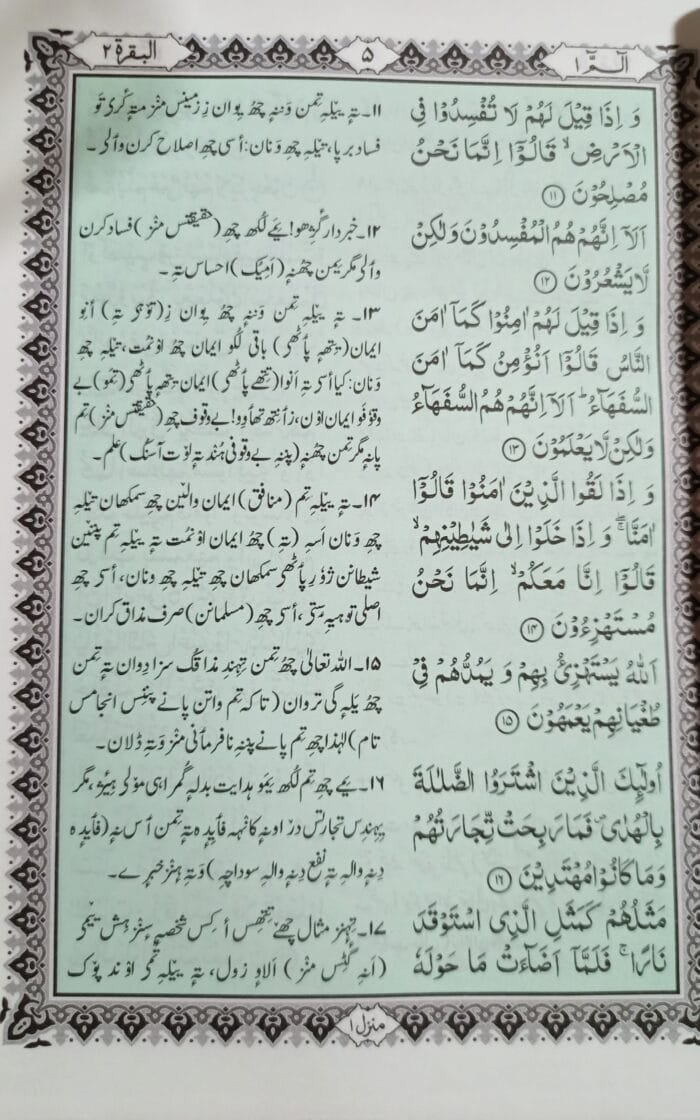 الٓمّٓ ۱
۵
البقرة ۲
وَ اِذَا قِیْلَ لَهُمْ لَا تُفْسِدُوْا فِی
الْاَرْضِ ۙ قَالُوْۤا اِنَّمَا نَحْنُ
مُصْلِحُوْنَ ﴿۱۱﴾
اَلَاۤ اِنَّهُمْ هُمُ الْمُفْسِدُوْنَ وَلٰكِنْ
لَّا یَشْعُرُوْنَ ﴿۱۲﴾
وَ اِذَا قِیْلَ لَهُمْ اٰمِنُوْا كَمَاۤ اٰمَنَ
النَّاسُ قَالُوْۤا اَنُؤْمِنُ كَمَاۤ اٰمَنَ
السُّفَهَآءُ ؕ اَلَاۤ اِنَّهُمْ هُمُ السُّفَهَآءُ
وَلٰكِنْ لَّا یَعْلَمُوْنَ ﴿۱۳﴾
وَ اِذَا لَقُوا الَّذِیْنَ اٰمَنُوْا قَالُوْۤا
اٰمَنَّا ۖۚ وَ اِذَا خَلَوْا اِلٰی شَیٰطِیْنِهِمْ ۙ
قَالُوْۤا اِنَّا مَعَكُمْ ۙ اِنَّمَا نَحْنُ
مُسْتَهْزِءُوْنَ ﴿۱۴﴾
اَللّٰهُ یَسْتَهْزِئُ بِهِمْ وَ یَمُدُّهُمْ فِیْ
طُغْیَانِهِمْ یَعْمَهُوْنَ ﴿۱۵﴾
اُولٰٓئِكَ الَّذِیْنَ اشْتَرَوُا الضَّلٰلَةَ
بِالْهُدٰی ۪ فَمَا رَبِحَتْ تِّجَارَتُهُمْ
وَمَا كَانُوْا مُهْتَدِیْنَ ﴿۱۶﴾
مَثَلُهُمْ كَمَثَلِ الَّذِی اسْتَوْقَدَ
نَارًا ۚ فَلَمَّاۤ اَضَآءَتْ مَا حَوْلَهٗ
۱۱۔ تہٕ ییٚلہِ تِمن وننہٕ چھُ یوان زِ زمینس منٛز متہٕ کٔرِو تو
فساد برپا، تیٚلہِ چھِ ونان: أسی چھِ اصلاح کرن والۍ ۔
۱۲۔ خبردار گژھو! یِمے لُکھ چھِ (حقیقتس منٛز) فساد کرن
والۍ مگر یمن چھُنہٕ (اَمیُک) احساس تہِ ۔
۱۳۔ تہٕ ییٚلہِ تِمن وننہٕ چھُ یوان زِ (توٚہۍ تہِ) أنِو
ایمان (یتھہٕ پٲٹھۍ) باقی لُکو ایمان چھُ اونمُت، تیٚلہِ چھِ
ونان: کیا أسۍ تہِ أنوا (تِتھے پٲٹھۍ) ایمان یتھہٕ پٲٹھۍ (تِمو) بے
وقوٗفو ایمان اوٚن، زٲنتھ تھٲوو! بے وقوف چھِ (حقیقتس منٛز) تِم
پانہٕ مگر تِمن چھُنہٕ (پننہِ بے وقوفی ہُند تہِ لوٚت آسنُک) علم۔
۱۴۔ تہٕ ییٚلہِ تِم (منافق) ایمان والیٚن چھِ سمکھان تیٚلہِ
چھِ ونان اَسہِ (تہِ) چھُ ایمان اونمُت تہٕ ییٚلہِ تِم پننیٚن
شیطانن ژوٗرِ پٲٹھۍ سمکھان چھِ تیٚلہِ چھِ ونان، أسۍ چھِ
اصلی توہیہِ ستۍ، أسۍ چھِ (مسلمانن) صرف مذاق کران۔
۱۵۔ اللہ تعالیٰ چھُ تِمن تِہندِ مذاقُک سزا دِوان تہٕ تِمن
چھُ یلہٕ گی تروان (تاکہ تِم واتن پانے پننِس انجامس
تام) لہٰذا چھِ تِم پانے پننہِ نافرمٲنی منٛز وَتہٕ ڈلان۔
۱۶۔ یِمے چھِ تِم لُکھ یِمو ہدایت بدلہٕ گُمراہی موٚلۍ ہیٚژ، مگر
یِہندِس تجارتس دراونہٕ کانٛہہ فایدہ تہٕ تِمن أس نہٕ (فایدہ
دِنہٕ والہِ تہٕ نفع دِنہٕ والہِ سوداچہِ) وَتہٕ ہنٛز خبرے۔
۱۷۔ تِہنٛز مثال چھےٚ تِتھِس أکِس شخصہٕ سٕنٛز ہِش یٔمۍ
(أنہِ گٔٹِس منٛز) الاو زول، تہٕ ییٚلہِ تٔمۍ اوٚند پوٚک
منزل ۱